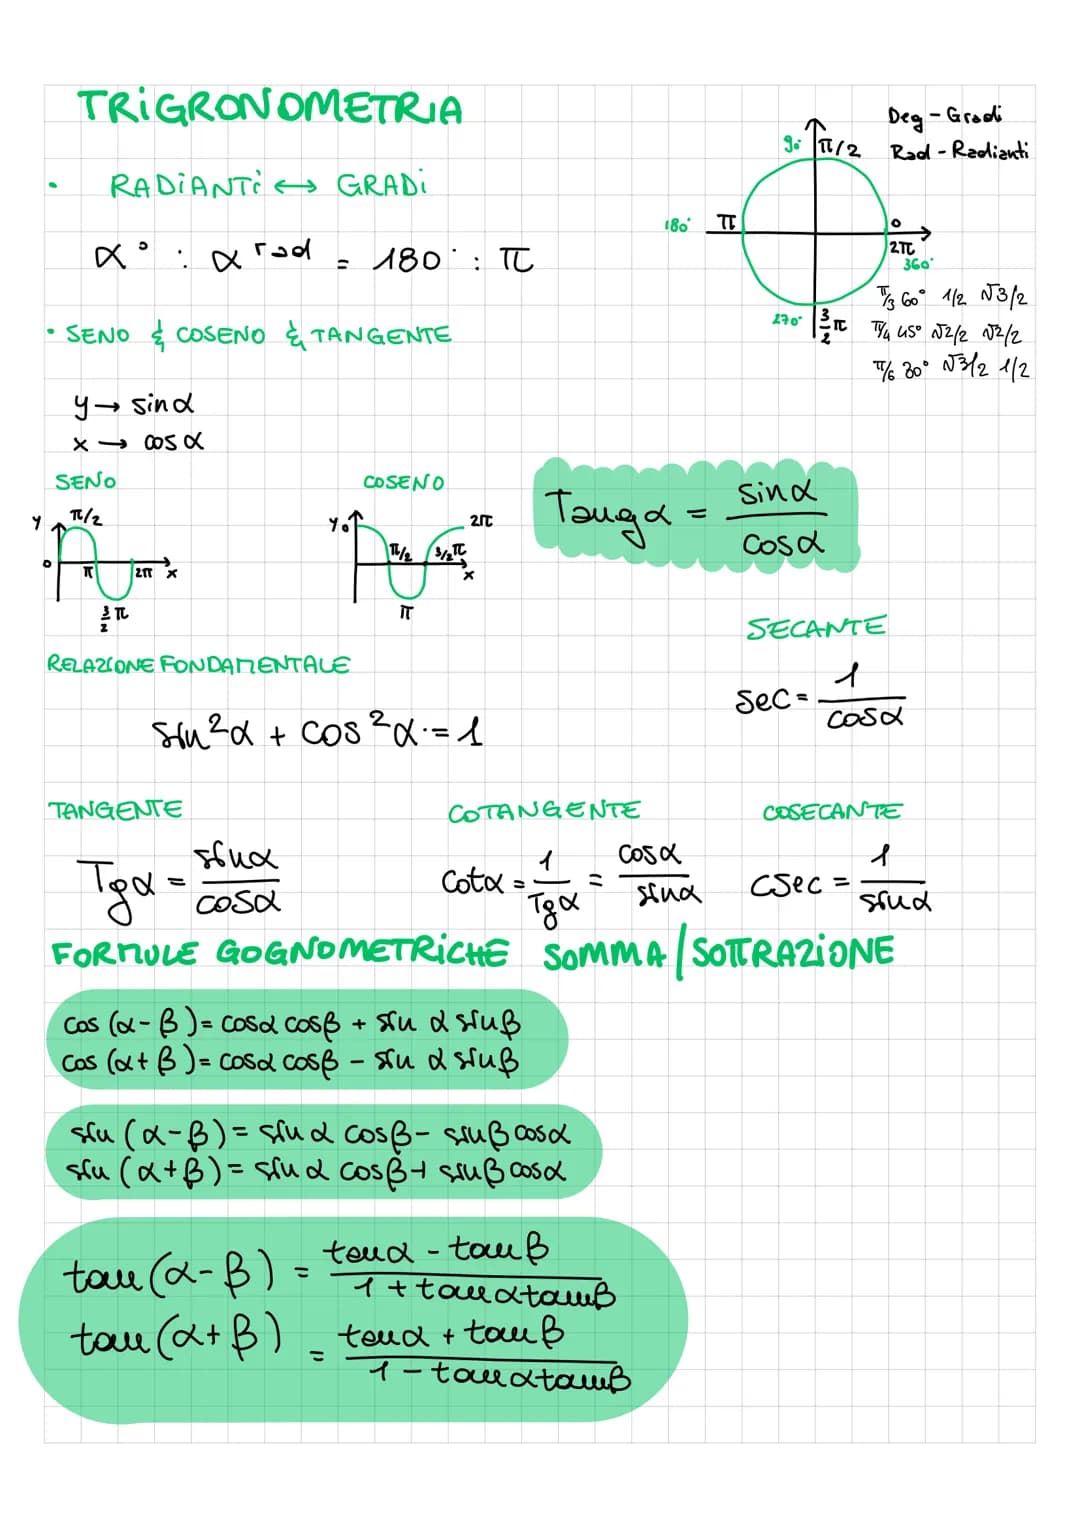 TRIGRONOMETRIA
Deg - Gradi
Rad - Radianti
90° π/2
180° π
0
2π
360°
270° 3/2 π
• RADIANTI ↔ GRADI
α° : α rad = 180° : π
π/3 60° 1/2 √3/2
π/4 45° √2/2 √2/2
π/6 30° √3/2 1/2
• SENO & COSENO & TANGENTE
y → sin α
x → cos α
SENO
y π/2
0 π 2π x
3/2 π
COSENO
y 0 2π
π/2 3/2 π x
π
Tang α = sin α / cos α
SECANTE
sec = 1 / cos α
RELAZIONE FONDAMENTALE
sin²α + cos²α = 1
TANGENTE
Tg α = sin α / cos α
COTANGENTE
Cot α = 1 / Tg α = cos α / sin α
COSECANTE
csec = 1 / sin α
FORMULE GOGNOMETRICHE SOMMA / SOTTRAZIONE
cos (α - β) = cos α cos β + sin α sin β
cos (α + β) = cos α cos β - sin α sin β
sin (α - β) = sin α cos β - sin β cos α
sin (α + β) = sin α cos β + sin β cos α
tan (α - β) = tan α - tan β / 1 + tan α tan β
tan (α + β) = tan α + tan β / 1 - tan α tan β